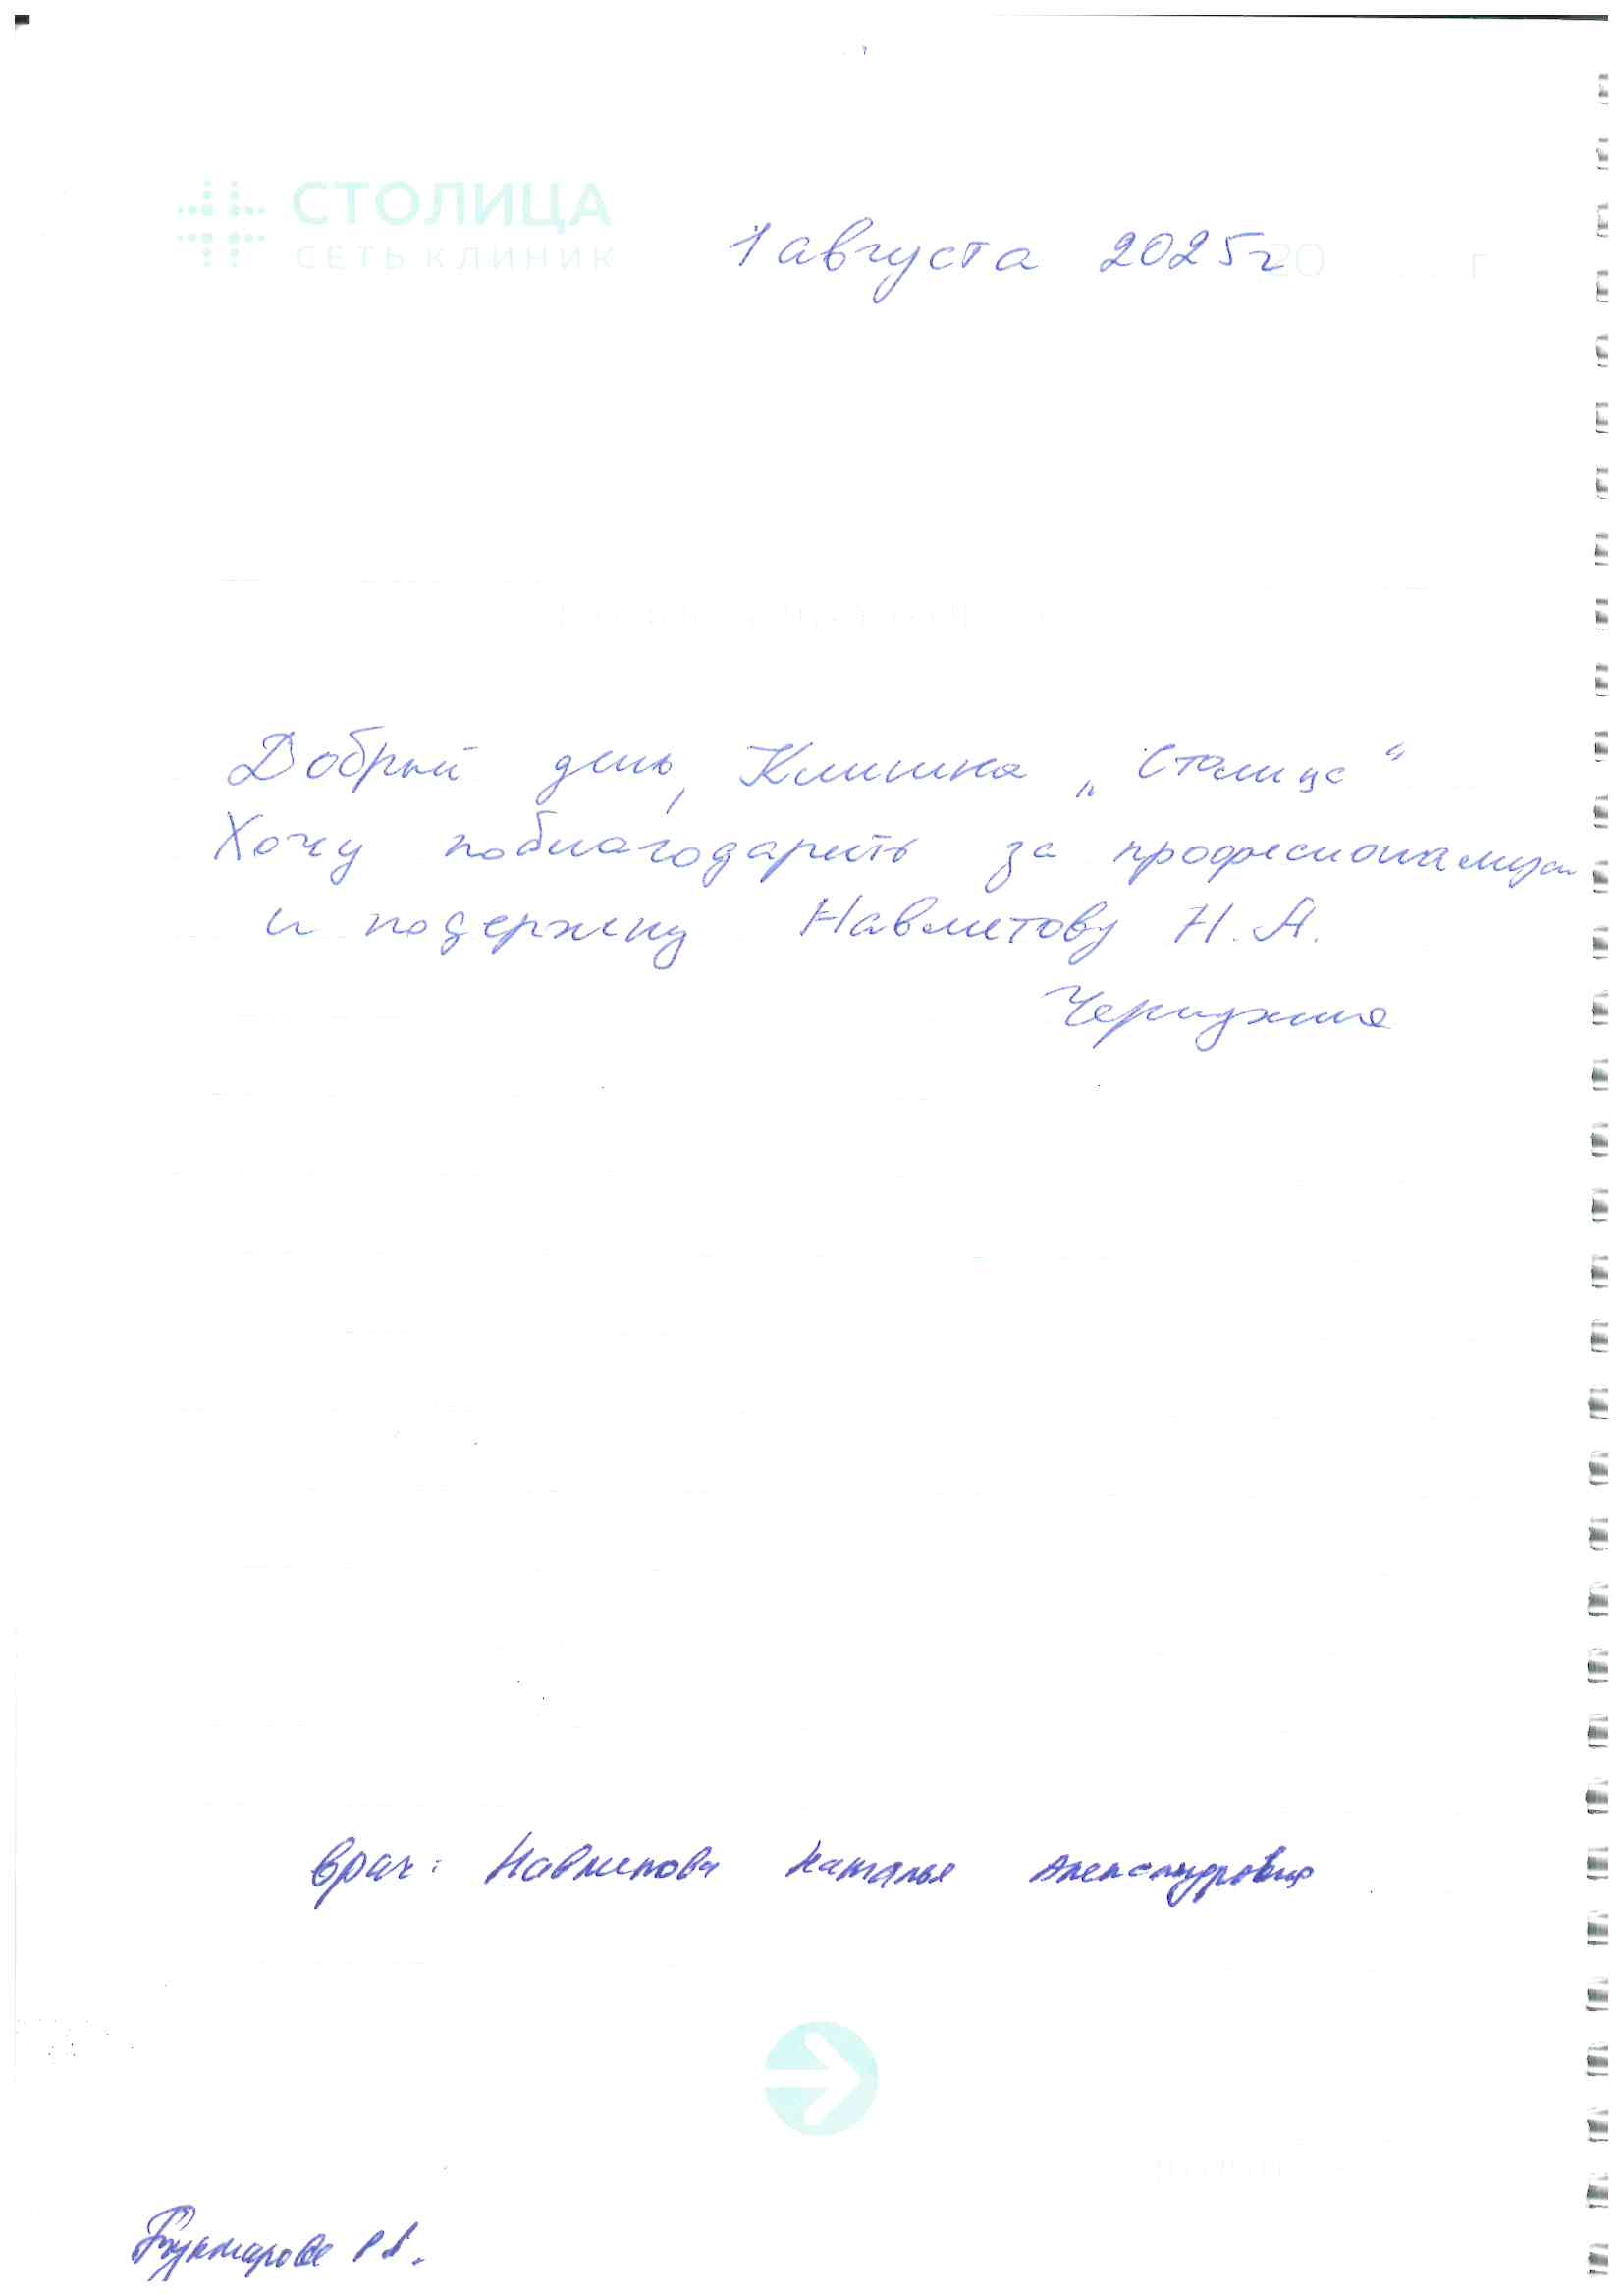 СТОЛИЦА
СЕТЬ КЛИНИК
1 августа 2025г
20 г
Добрый день, Клиника „Столица“
Хочу поблагодарить за професионализм
и подержку Навлетову Н. А.
врач: Наталья Александровна